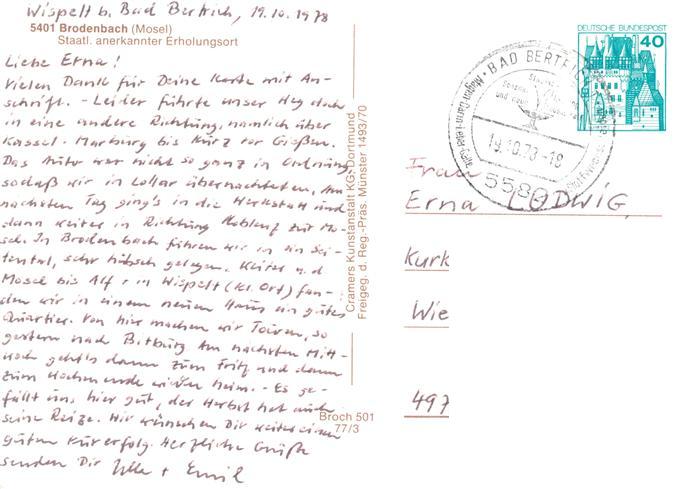 Wispelt b. Bad Bertrich, 19.10.1978
5401 Brodenbach (Mosel)
Staatl. anerkannter Erholungsort
Liebe Erna!
Vielen Dank für Deine Karte mit An-
schrift. - Leider führte unser Weg doch
in eine andere Richtung, nämlich über
Kassel - Marburg bis kurz vor Gießen.
Das Auto war nicht so ganz in Ordnung,
sodaß wir in Lollar übernachteten. Am
nächsten Tag ging's in die Werkstatt und
dann weiter in Richtung Koblenz zur Mo-
sel. In Brodenbach fuhren wir in ein Sei-
tental, sehr hübsch gelegen. Weiter a.d.
Mosel bis Alf + in Wispelt (kl. Ort) fan-
den wir in einem neuen Haus ein gutes
Quartier. Von hier machen wir Touren, so
gestern nach Bitburg. Am nächsten Mitt-
woch geht's dann zum Fritz und dann
zum Wochenende wieder heim. - Es ge-
fällt uns hier gut, der Herbst hat auch
seine Reize. Wir wünschen Dir weiter einen
guten Kurerfolg. Herzliche Grüße
senden Dir Ulla + Emil
Cramers Kunstanstalt KG, Dortmund
Freigeg. d. Reg.-Präs. Münster 1493/70
Broch 501
77/3
DEUTSCHE BUNDESPOST
40
BAD BERTRICH
19.10.78-18
5582
Frau
Erna LUDWIG,
Kurk
Wie
497